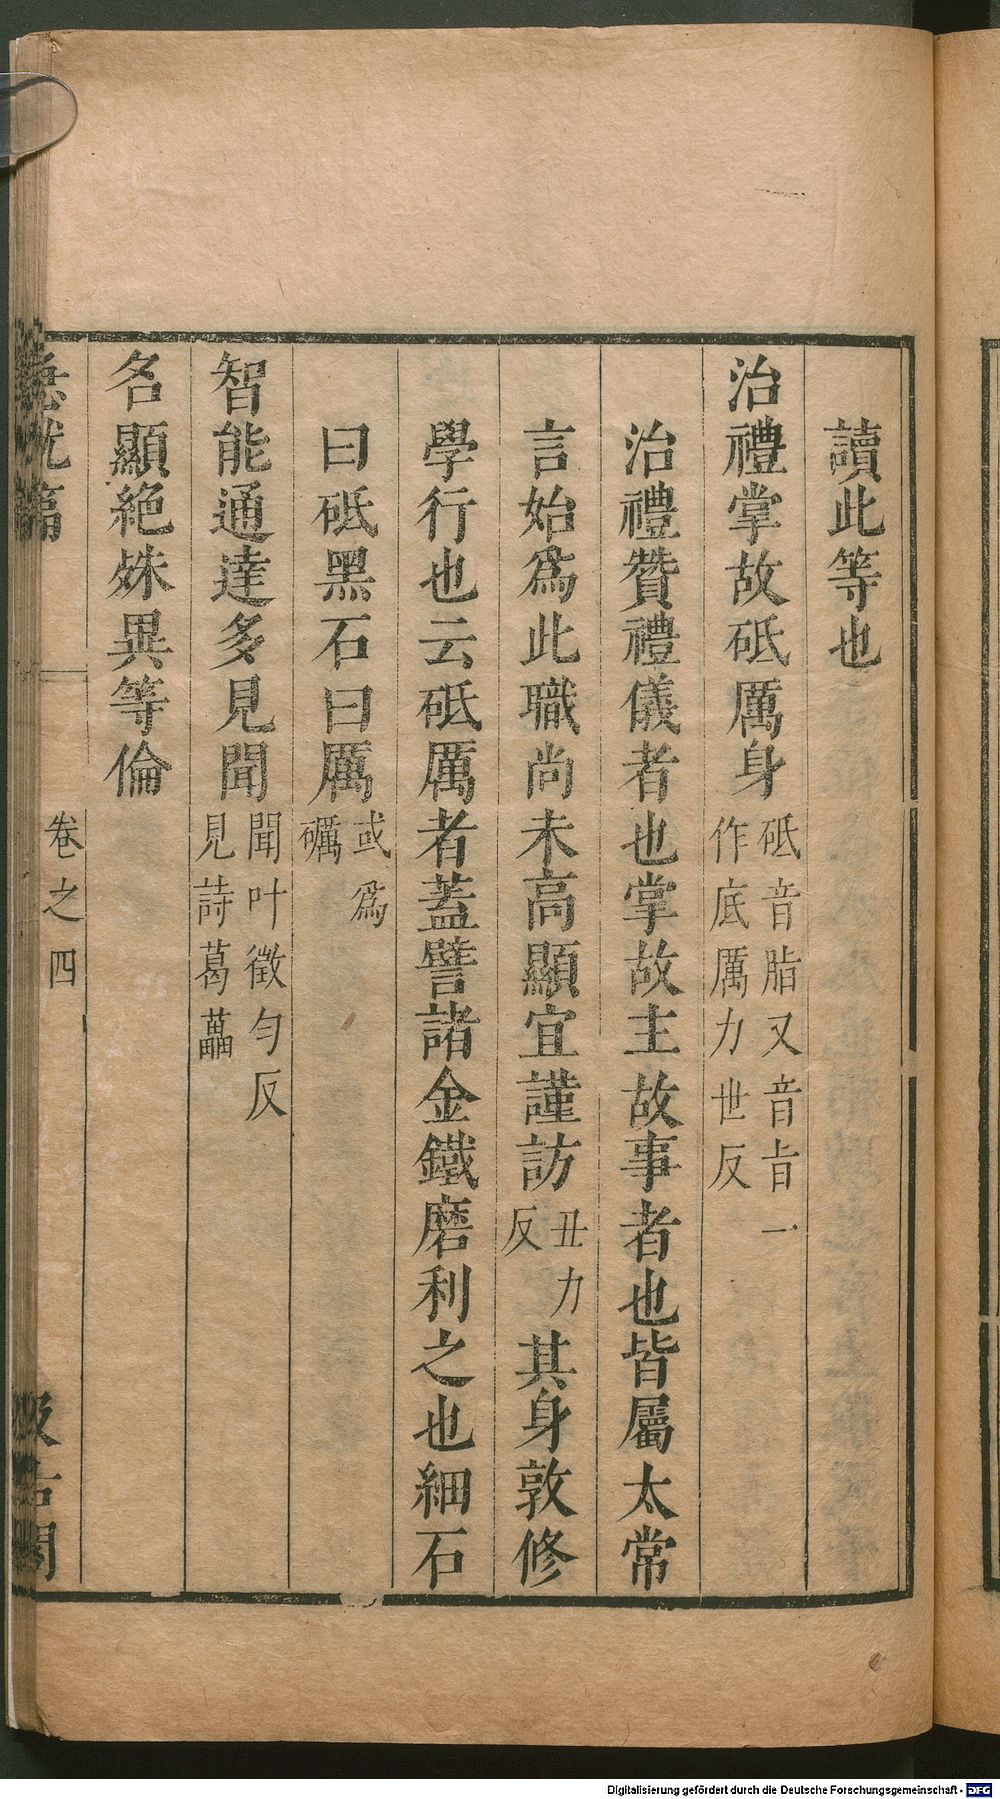 讀此等也
治禮掌故砥厲身砥音脂又音旨一作底厲力世反
治禮贊禮儀者也掌故主故事者也皆屬太常
言始爲此職尚未高顯宜謹訪丑力反其身敦修
學行也云砥厲者蓋譬諸金鐵磨利之也細石
曰砥黑石曰厲或爲礪
智能通達多見聞聞叶徵勻反見詩葛藟
名顯絶殊異等倫
急就篇 卷之四 汲古閣
Digitalisierung gefördert durch die Deutsche Forschungsgemeinschaft - DFG